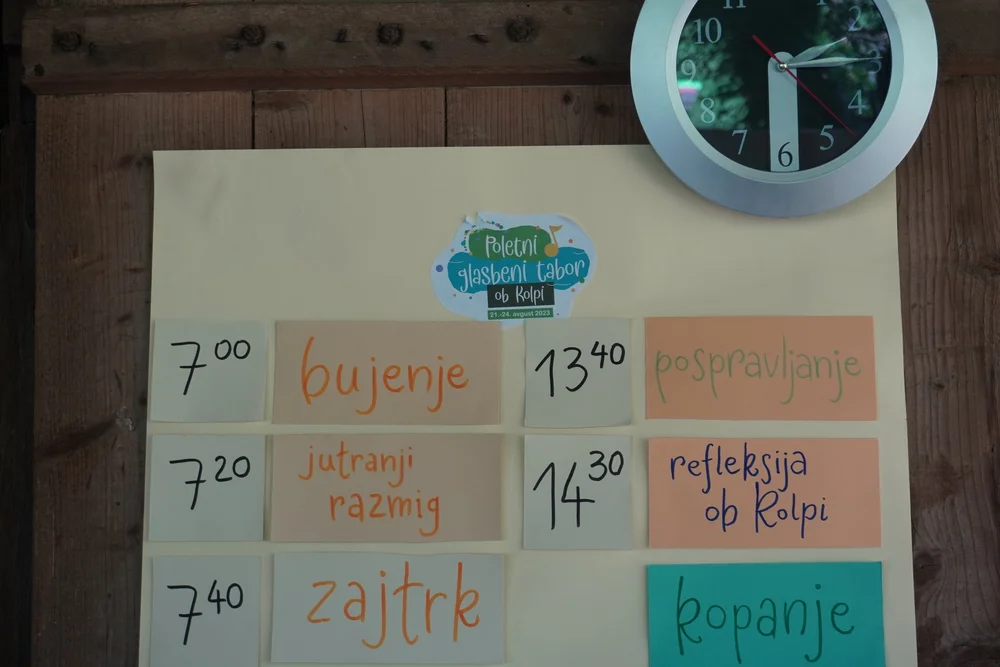 11
1
10
2
9
3
8
4
7
5
6
Poletni
glasbeni tabor
ob Kolpi
21.-24. avgust 2023
7 00
bujenje
7 20
jutranji
razmig
7 40
zajtrk
13 40
pospravljanje
14 30
refleksija
ob Kolpi
kopanje